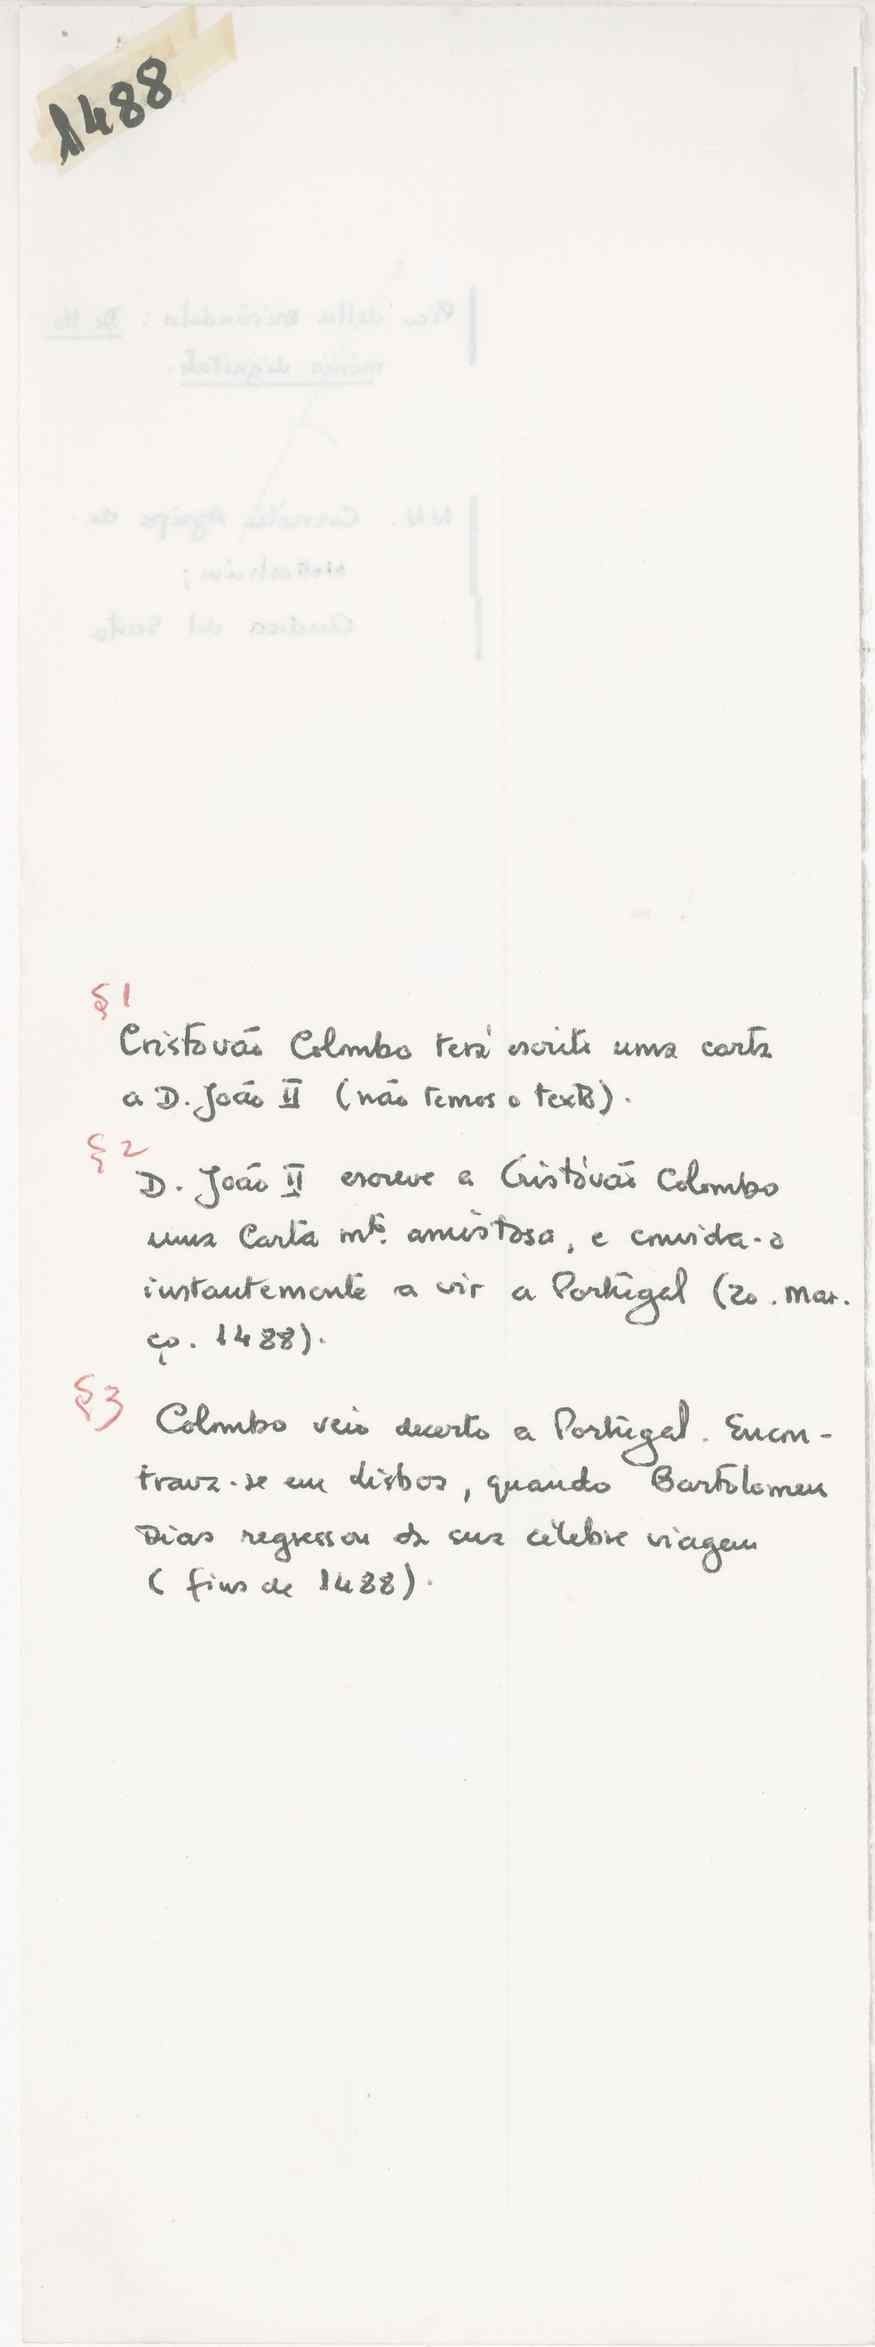 1488
§ 1
Cristovão Colombo terá escrito uma carta
a D. João II (não temos o texto).
§ 2
D. João II escreve a Cristóvão Colombo
uma Carta mto. amistosa, e convida-o
instantemente a vir a Portugal (20. Mar.
ço. 1488).
§ 3
Colombo veio decerto a Portugal. Encon-
trava-se em Lisboa, quando Bartolomeu
Dias regressou da sua célebre viagem
(fins de 1488).